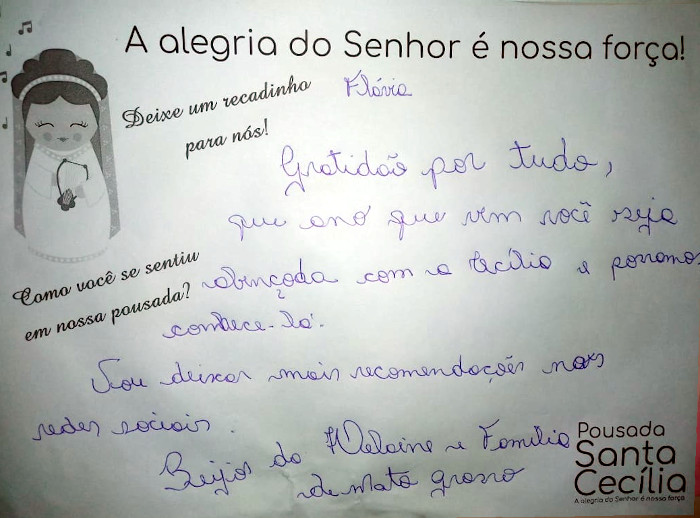 A alegria do Senhor é nossa força!
Deixe um recadinho
para nós!
Flávia
Gratidão por tudo,
que ano que vem você seja
abençoada com a Cecília e possamos
conhece-lá.
Vou deixar mais recomendações nas
redes sociais.
Como você se sentiu
em nossa pousada?
Beijos da Welaine e Família
de Mato grosso
Pousada
Santa
Cecília
A alegria do Senhor é nossa força